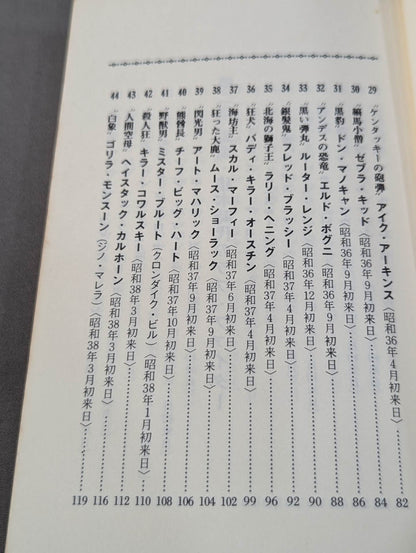 29 "ケンタッキーの砲弾" アイク・アーキンス〈昭和36年4月初来日〉……82
30 "縞馬小僧" ゼブラ・キッド〈昭和36年9月初来日〉……84
31 "黒豹" ドン・マノキャン〈昭和36年9月初来日〉……86
32 "アンデスの恐竜" エルド・ボグニ〈昭和36年9月初来日〉……88
33 "黒い弾丸" ルーター・レンジ〈昭和36年12月初来日〉……90
34 "銀髪鬼" フレッド・ブラッシー〈昭和37年4月初来日〉……92
35 "北海の獅子王" ラリー・ヘニング〈昭和37年4月初来日〉……96
36 "狂犬" バディ・キラー・オースチン〈昭和37年4月初来日〉……99
37 "海坊主" スカル・マーフィー〈昭和37年6月初来日〉……102
38 "狂った大鹿" ムース・ショーラック〈昭和37年4月初来日〉……104
39 "閃光男" アート・マハリック〈昭和37年9月初来日〉……106
40 "熊酋長" チーフ・ビッグ・ハート〈昭和37年10月初来日〉……108
41 "野獣男" ミスター・ブルート(クロンダイク・ビル)〈昭和38年1月初来日〉……110
42 "殺人狂" キラー・コワルスキー〈昭和38年3月初来日〉……112
43 "人間空母" ヘイスタック・カルホーン〈昭和38年3月初来日〉……116
44 "白象" ゴリラ・モンスーン(ジノ・マレラ)〈昭和38年3月初来日〉……119